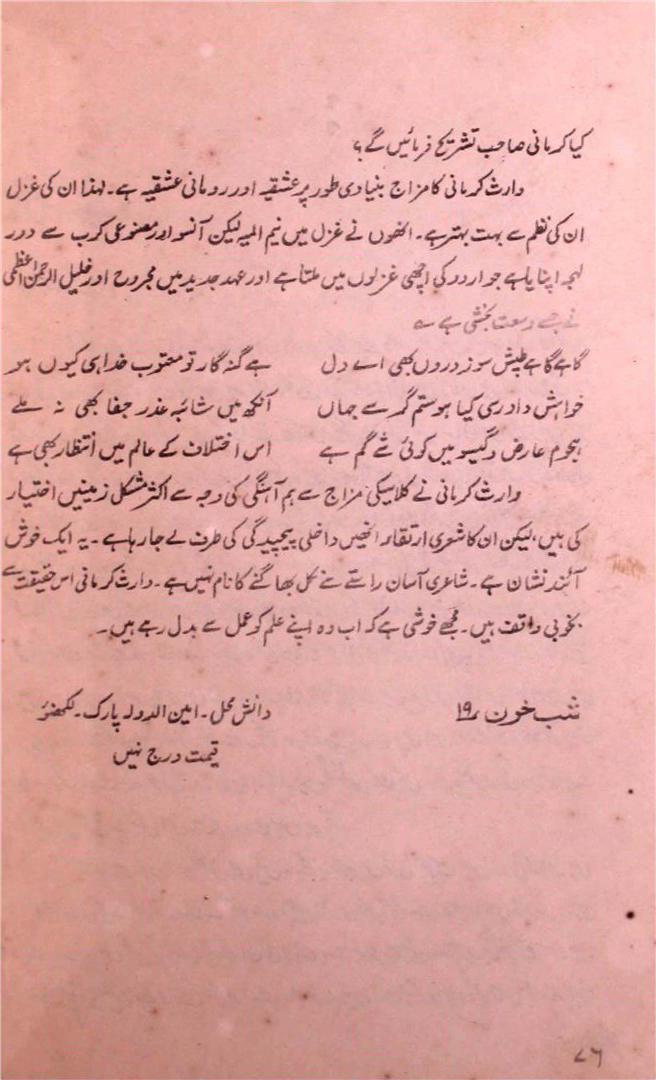 کیا کرمانی صاحب تشریح فرمائیں گے؟
وارث کرمانی کا مزاج بنیادی طور پر عشقیہ اور رومانی عشقیہ ہے۔ لہذا ان کی غزل
ان کی نظم سے بہت بہتر ہے۔ انھوں نے غزل میں نیم المیہ لیکن آنسو اور مصنوعی کرب سے دور
لہجہ اپنایا ہے جو اردو کی اچھی غزلوں میں ملتا ہے اور عہد جدید میں مجروح اور خلیل الرحمٰن اعظمی
نے جسے وسعت بخشی ہے ؎
گاہے گاہے طپش سوز دروں بھی اے دل ہے گنہ گار تو معتوب خدا ہی کیوں ہو
خواہش داد رسی کیا ہو ستم گر سے جہاں آنکھ میں شائبہ عذر جفا بھی نہ ملے
ہجوم عارض و گیسو میں کوئی شے گم ہے اس اختلاف کے عالم میں انتظار بھی ہے
وارث کرمانی نے کلاسیکی مزاج سے ہم آہنگی کی وجہ سے اکثر مشکل زمینیں اختیار
کی ہیں، لیکن ان کا شعری ارتقاء انھیں داخلی پیچیدگی کی طرف لے جا رہا ہے۔ یہ ایک خوش
آئند نشان ہے۔ شاعری آسان راستے سے نکل بھاگنے کا نام نہیں ہے۔ وارث کرمانی اس حقیقت سے
بخوبی واقف ہیں۔ مجھے خوشی ہے کہ اب وہ اپنے علم کو عمل سے بدل رہے ہیں۔
شب خون ۱۹؍ دانش محل۔ امین الدولہ پارک۔ لکھنؤ
قیمت درج نہیں
۷۶